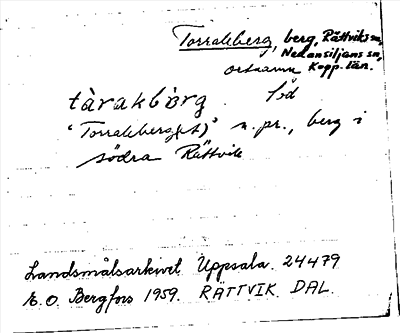 Torrakberg, berg, Rättviks sn,
Nedansiljans sn,
ortnamn Kopp. län.
tàrakbærg
'Torrakberg(et)' n. pr., berg i
södra Rättvik
Landsmålsarkivet Uppsala 24479
E. O. Bergfors 1959. RÄTTVIK DAL.